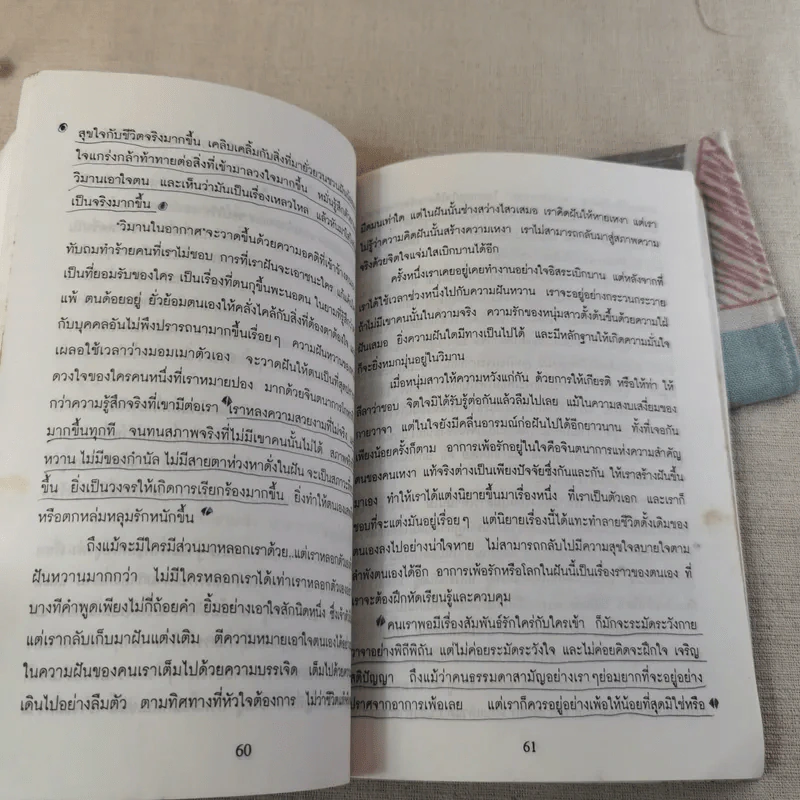 สุขใจกับชีวิตจริงมากขึ้น เคลิบเคลิ้มกับสิ่งที่มายั่วยวนชวนฝัน
ใจแกร่งกล้าท้าทายต่อสิ่งที่เข้ามาลวงใจมากขึ้น หมั่นรู้สึกตัว
วิมานเอาใจตน และเห็นว่ามันเป็นเรื่องเหลวไหล แล้วหันมา
เป็นจริงมากขึ้น
"วิมานในอากาศ" จะวาดขึ้นด้วยความอคติที่เข้าข้าง
ทับถมทำร้ายคนที่เราไม่ชอบ การที่เราฝันจะเอาชนะใคร
เป็นที่ยอมรับของใคร เป็นเรื่องที่ตนกุขึ้นพะนอตน ในยามที่รู้สึก
แพ้ ตนด้อยอยู่ ยั่วย้อมตนเองให้คลั่งไคล้กับสิ่งที่ต้องตาต้องใจ
กับบุคคลอันไม่พึงปรารถนามากขึ้นเรื่อยๆ ความฝันหวานของ
เผลอใช้เวลาว่างมอมเมาตัวเอง จะวาดฝันให้ตนเป็นที่สุด
ดวงใจของใครคนหนึ่งที่เราหมายปอง มากด้วยจินตนาการ
กว่าความรู้สึกจริงที่เขามีต่อเรา เราหลงความสวยงามที่ไม่จริง
มากขึ้นทุกที จนทนสภาพจริงที่ไม่มีเขาคนนั้นไม่ได้ สภาพ
หวาน ไม่มีของกำนัล ไม่มีสายตาห่วงหาดั่งในฝัน จะเป็นสภาวะ
ขึ้น ยิ่งเป็นวงจรให้เกิดการเรียกร้องมากขึ้น ยิ่งทำให้ตนเอง
หรือตกหล่มหลุมรักหนักขึ้น
ถึงแม้จะมีใครมีส่วนมาหลอกเราด้วย..แต่เราหลอกตัวเอง
ฝันหวานมากกว่า ไม่มีใครหลอกเราได้เท่าเราหลอกตัวเอง
บางทีคำพูดเพียงไม่กี่ถ้อยคำ ยิ้มอย่างเอาใจสักนิดหนึ่ง
แต่เรากลับเก็บมาฝันแต่งเติม ตีความหมายเอาใจตนเองได้อย่าง
ในความฝันของคนเราเต็มไปด้วยความบรรเจิด เต็มไปด้วย
เดินไปอย่างลืมตัว ตามทิศทางที่หัวใจต้องการ ไม่ว่าชีวิต
60
มืดมนเท่าใด แต่ในฝันนั้นช่างสว่างไสวเสมอ เราคิดฝันให้หายเหงา แต่เรา
ไม่รู้ว่าความคิดฝันนั้นสร้างความเหงา เราไม่สามารถกลับมาสู่สภาพความ
จริงด้วยจิตใจแจ่มใสเบิกบานได้อีก
ครั้งหนึ่งเราเคยอยู่เคยทำงานอย่างใจอิสระเบิกบาน แต่หลังจากที่
เราได้ใช้เวลาช่วงหนึ่งไปกับความฝันหวาน เราจะอยู่อย่างกระวนกระวาย
ถ้าไม่มีเขาคนนั้นในความจริง ความรักของหนุ่มสาวดั้งด้นขึ้นด้วยความใฝ่
ฝันเสมอ ยิ่งความฝันใดมีทางเป็นไปได้ และมีหลักฐานให้เกิดความมั่นใจ
ก็จะยิ่งหมกมุ่นอยู่ในวิมาน
เมื่อหนุ่มสาวให้ความหวังแก่กัน ด้วยการให้เกียรติ หรือให้ท่า ให้
ลีลาว่าชอบ จิตใจมิได้รับรู้ต่อกันแล้วลืมไปเลย แม้ในความสงบเสงี่ยมของ
กายวาจา แต่ในใจยังมีคลื่นอารมณ์ก่อฝันไปได้อีกยาวนาน ทั้งที่เจอกัน
เพียงน้อยครั้งก็ตาม อาการเพ้อรักอยู่ในใจคือจินตนาการแห่งความสำคัญ
ของคนเหงา แท้จริงต่างเป็นเพียงปัจจัยซึ่งกันและกัน ให้เราสร้างฝันขึ้น
มาเอง ทำให้เราได้แต่งนิยายขึ้นมาเรื่องหนึ่ง ที่เราเป็นตัวเอก และเราก็
ชอบที่จะแต่งมันอยู่เรื่อยๆ แต่นิยายเรื่องนี้ได้แทะทำลายชีวิตดั้งเดิมของ
ตนเองลงไปอย่างน่าใจหาย ไม่สามารถกลับไปมีความสุขใจสบายใจตาม
ลำพังตนเองได้อีก อาการเพ้อรักหรือโลกในฝันนี้เป็นเรื่องราวของตนเอง ที่
เราจะต้องฝึกหัดเรียนรู้และควบคุม
คนเราพอมีเรื่องสัมพันธ์รักใคร่กับใครเข้า ก็มักจะระมัดระวังกาย
วาจาอย่างพิถีพิถัน แต่ไม่ค่อยระมัดระวังใจ และไม่ค่อยคิดจะฝึกใจ เจริญ
สติปัญญา ถึงแม้ว่าคนธรรมดาสามัญอย่างเราๆย่อมยากที่จะอยู่อย่าง
ปราศจากอาการเพ้อเลย แต่เราก็ควรอยู่อย่างเพ้อให้น้อยที่สุดมิใช่หรือ
61